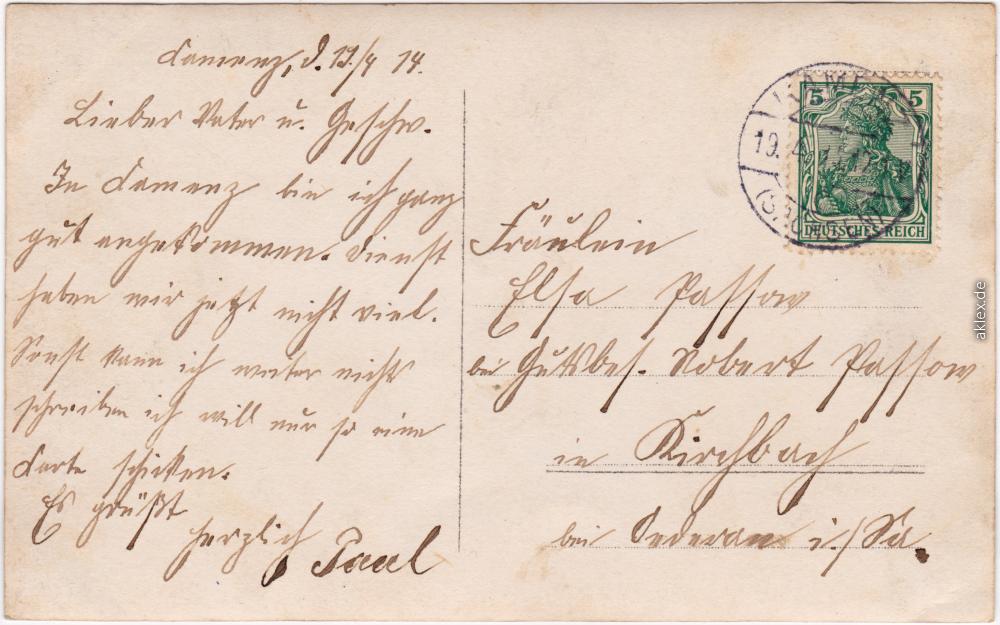 Kamenz, d. 19/4 14.
Lieber Vater u. Geschw.
In Kamenz bin ich ganz
gut angekommen. Dienst
haben wir jetzt nicht viel.
Sonst kann ich weiter nichts
schreiben ich will nur so eine
Karte schicken.
Es grüßt
herzlich
Paul
KAMENZ
19. 4. 14
(SACHSEN)
5 5
DEUTSCHES REICH
Fräulein
Elsa Passow
bei Gutsbes. Robert Passow
in Kirchbach
bei Oederan i./Sa.
aklex.de